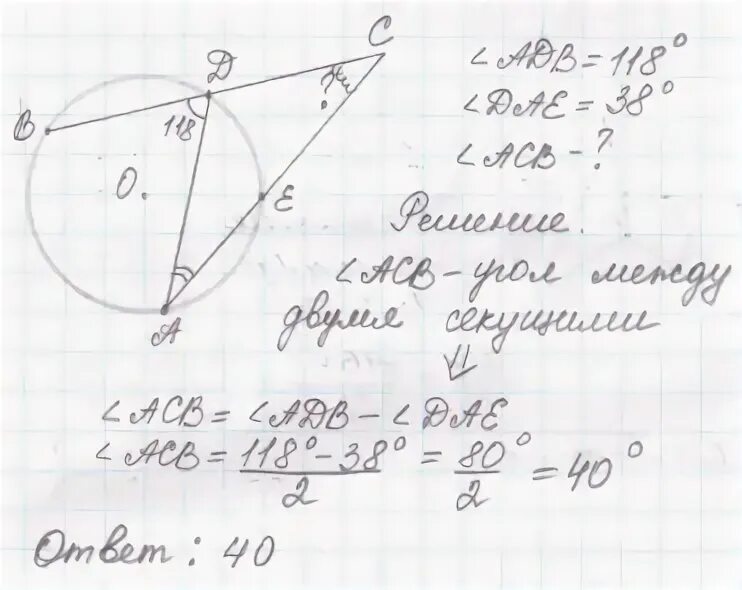 C
∠ADB = 118°
D
∠DAE = 38°
B
118
∠ACB - ?
O.
E
Решение.
∠ACB - угол между
двумя секущими
A
⇓
∠ACB = ∠ADB - ∠DAE
∠ACB = (118° - 38°)/2 = 80°/2 = 40°
Ответ: 40